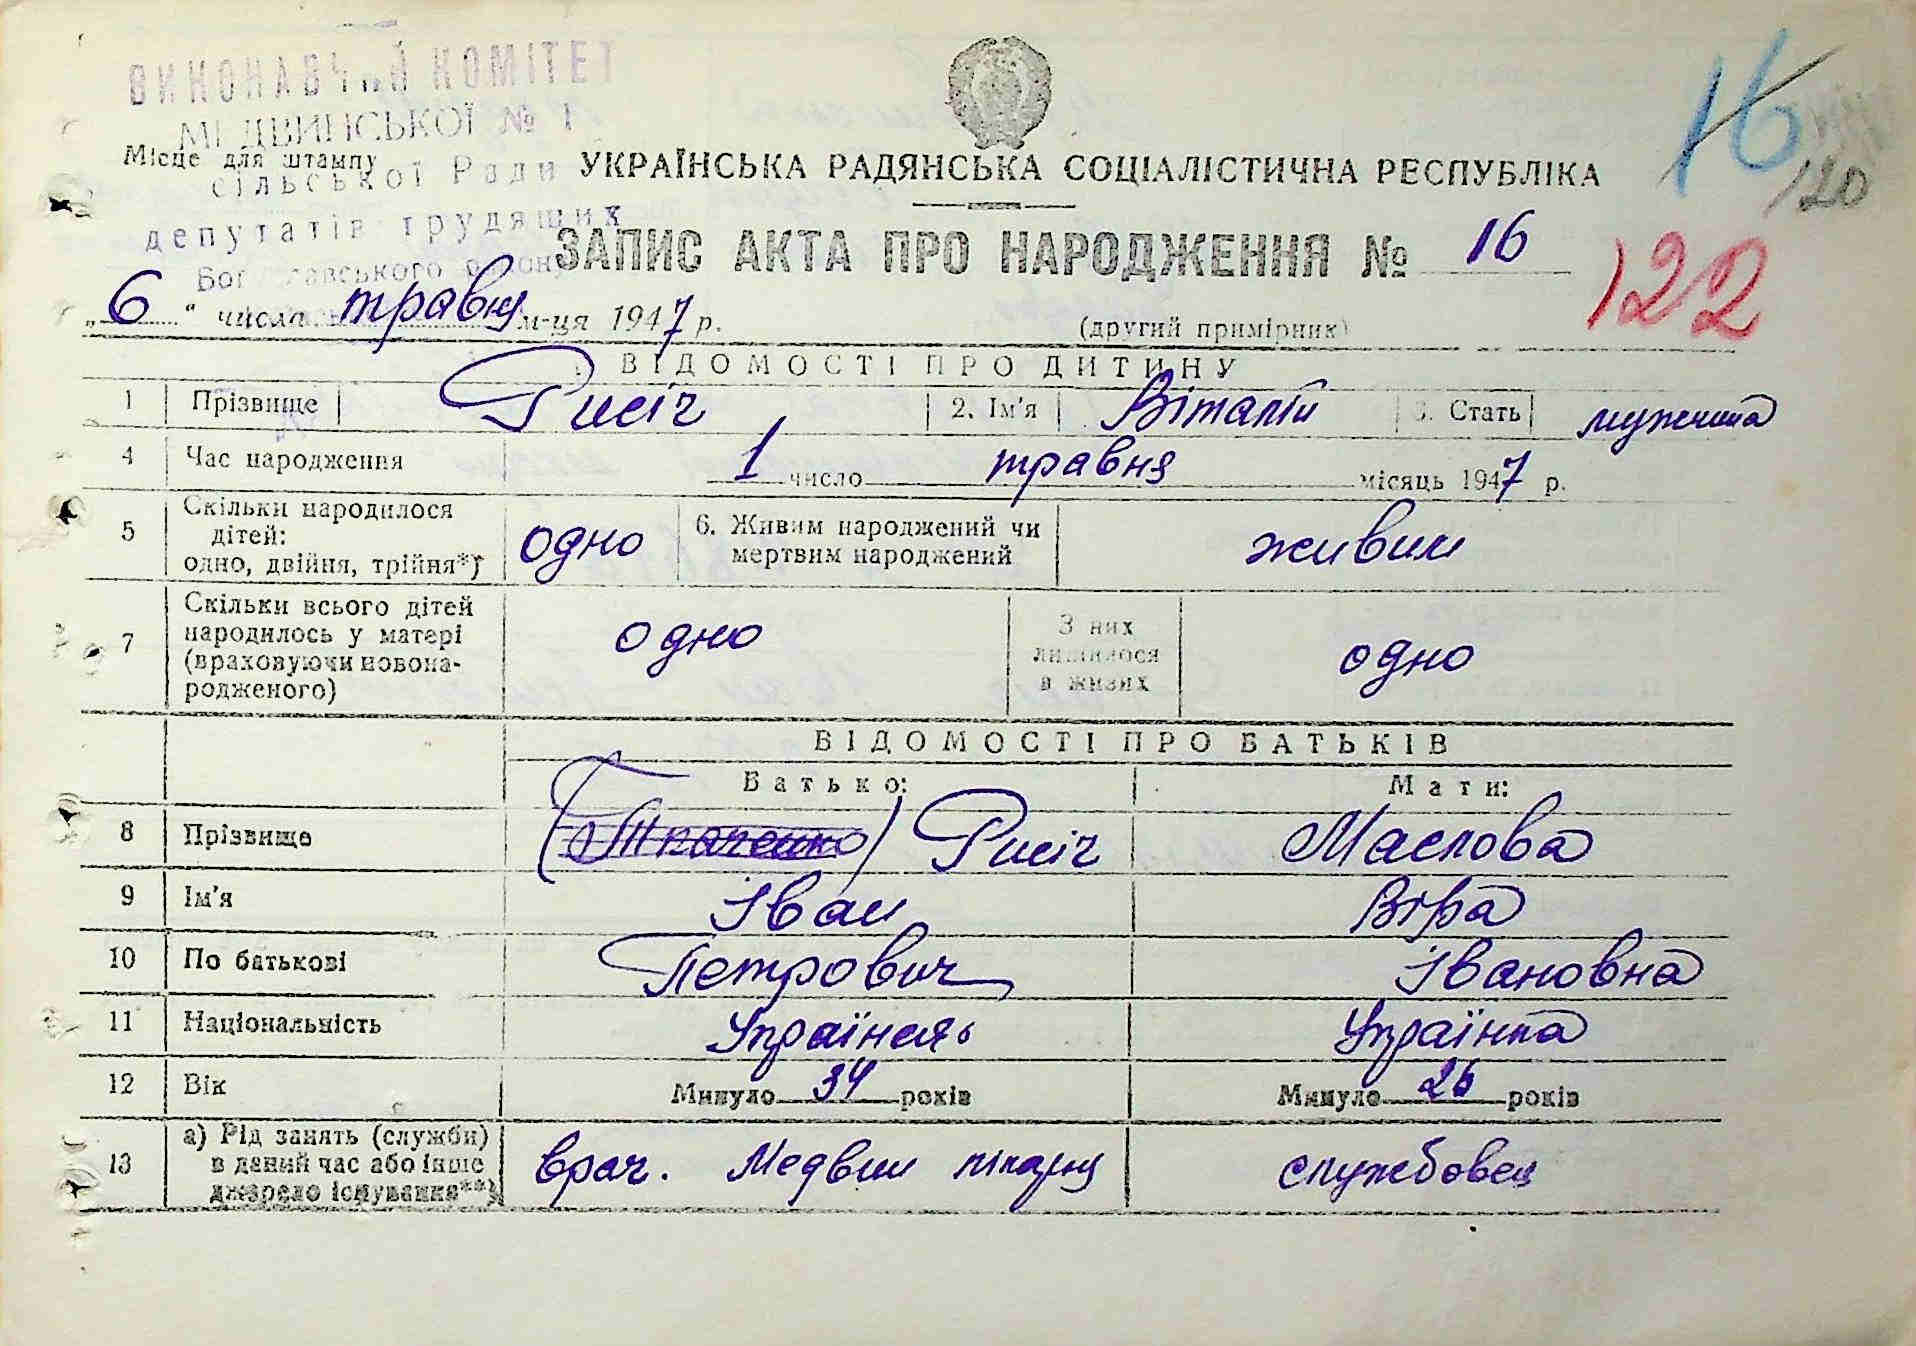 ВИКОНАВЧИЙ КОМІТЕТ
МЕДВИНСЬКОЇ № 1
Місце для штампу
сільської Ради
депутатів трудящих
Богуславського району
16
120
122
УКРАЇНСЬКА РАДЯНСЬКА СОЦІАЛІСТИЧНА РЕСПУБЛІКА
ЗАПИС АКТА ПРО НАРОДЖЕННЯ № 16
„6“ числа травня м-ця 1947 р.
(другий примірник)
І. ВІДОМОСТІ ПРО ДИТИНУ
1 Прізвище Рисіч 2. Ім'я Віталій 3. Стать мужчина
4 Час народження 1 число травня місяць 1947 р.
5 Скільки народилося дітей: одно, двійня, трійня*) одно 6. Живим народжений чи мертвим народжений живим
7 Скільки всього дітей народилось у матері (враховуючи новонародженого) одно З них лишилося в живих одно
ВІДОМОСТІ ПРО БАТЬКІВ
Батько: Мати:
8 Прізвище (Ткаченко) Рисіч Маслова
9 Ім'я Іван Віра
10 По батькові Петрович Івановна
11 Національність Українець Українка
12 Вік Минуло 34 років Минуло 26 років
13 а) Рід занять (служби) в даний час або інше джерело існування**) врач. Медвин лікарня службовец